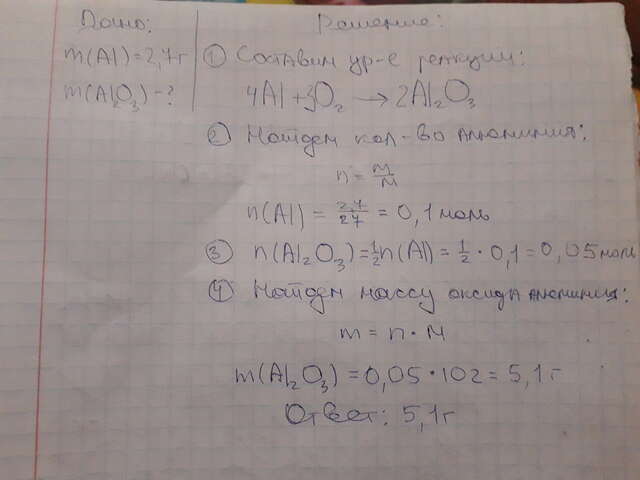 Дано:
m(Al)=2,7г
m(Al₂O₃)-?
Решение:
① Составим ур-е реакции:
4Al+3O₂ → 2Al₂O₃
② Найдем кол-во алюминия:
n = m/M
n(Al) = 2,7/27 = 0,1 моль
③ n(Al₂O₃)=½n(Al)=½·0,1=0,05моль
④ Найдем массу оксида алюминия:
m = n·M
m(Al₂O₃)=0,05·102=5,1г
Ответ: 5,1г